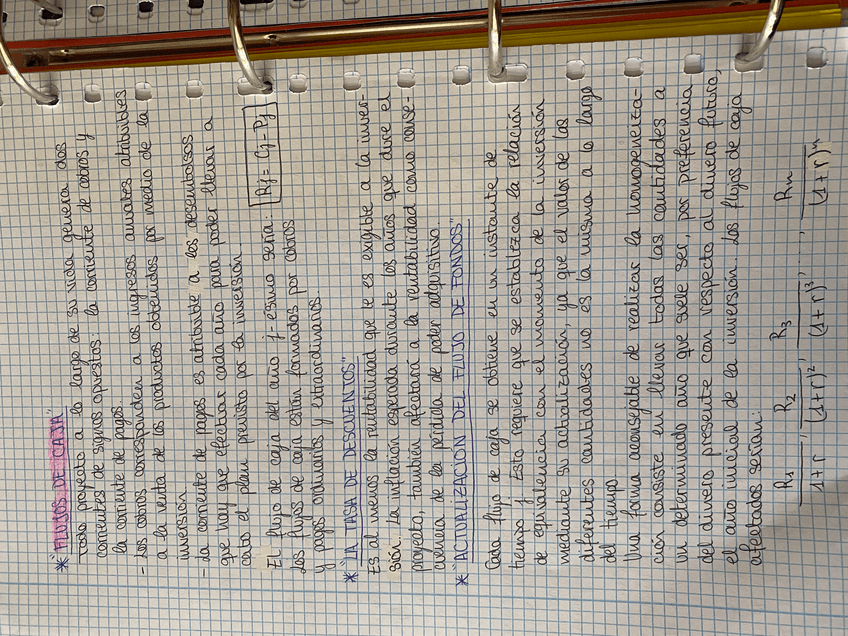 * "FLUJOS DE CAJA"
Todo proyecto a lo largo de su vida genera dos
corrientes de signos opuestos: la corriente de cobros y
la corriente de pagos.
- Los cobros corresponden a los ingresos anuales atribuibles
a la venta de los productos obtenidos por medio de la
inversión
- La corriente de pagos es atribuible a los desembolsos
que hay que efectuar cada año para poder llevar a
cabo el plan previsto por la inversión
El flujo de caja del año j-ésimo sería: Rj = Cj - Pj
Los flujos de caja están formados por cobros
y pagos ordinarios y extraordinarios.
* "LA TASA DE DESCUENTOS"
Es al menos la rentabilidad que le es exigible a la inver-
sión. La inflación esperada durante los años que dure el
proyecto, también afectará a la rentabilidad como conse-
cuencia de la pérdida de poder adquisitivo.
* "ACTUALIZACIÓN DEL FLUJO DE FONDOS"
Cada flujo de caja se obtiene en un instante de
tiempo j. Esto requiere que se establezca la relación
de equivalencia con el momento de la inversión
mediante su actualización, ya que el valor de las
diferentes cantidades no es la misma a lo largo
del tiempo
Una forma aconsejable de realizar la homogeneiza-
ción consiste en llevar todas las cantidades a
un determinado año que suele ser, por preferencia
del dinero presente con respecto al dinero futuro,
el año inicial de la inversión. Los flujos de caja
afectados serían:
R1/1+r, R2/(1+r)², R3/(1+r)³, ..., Rn/(1+r)ⁿ